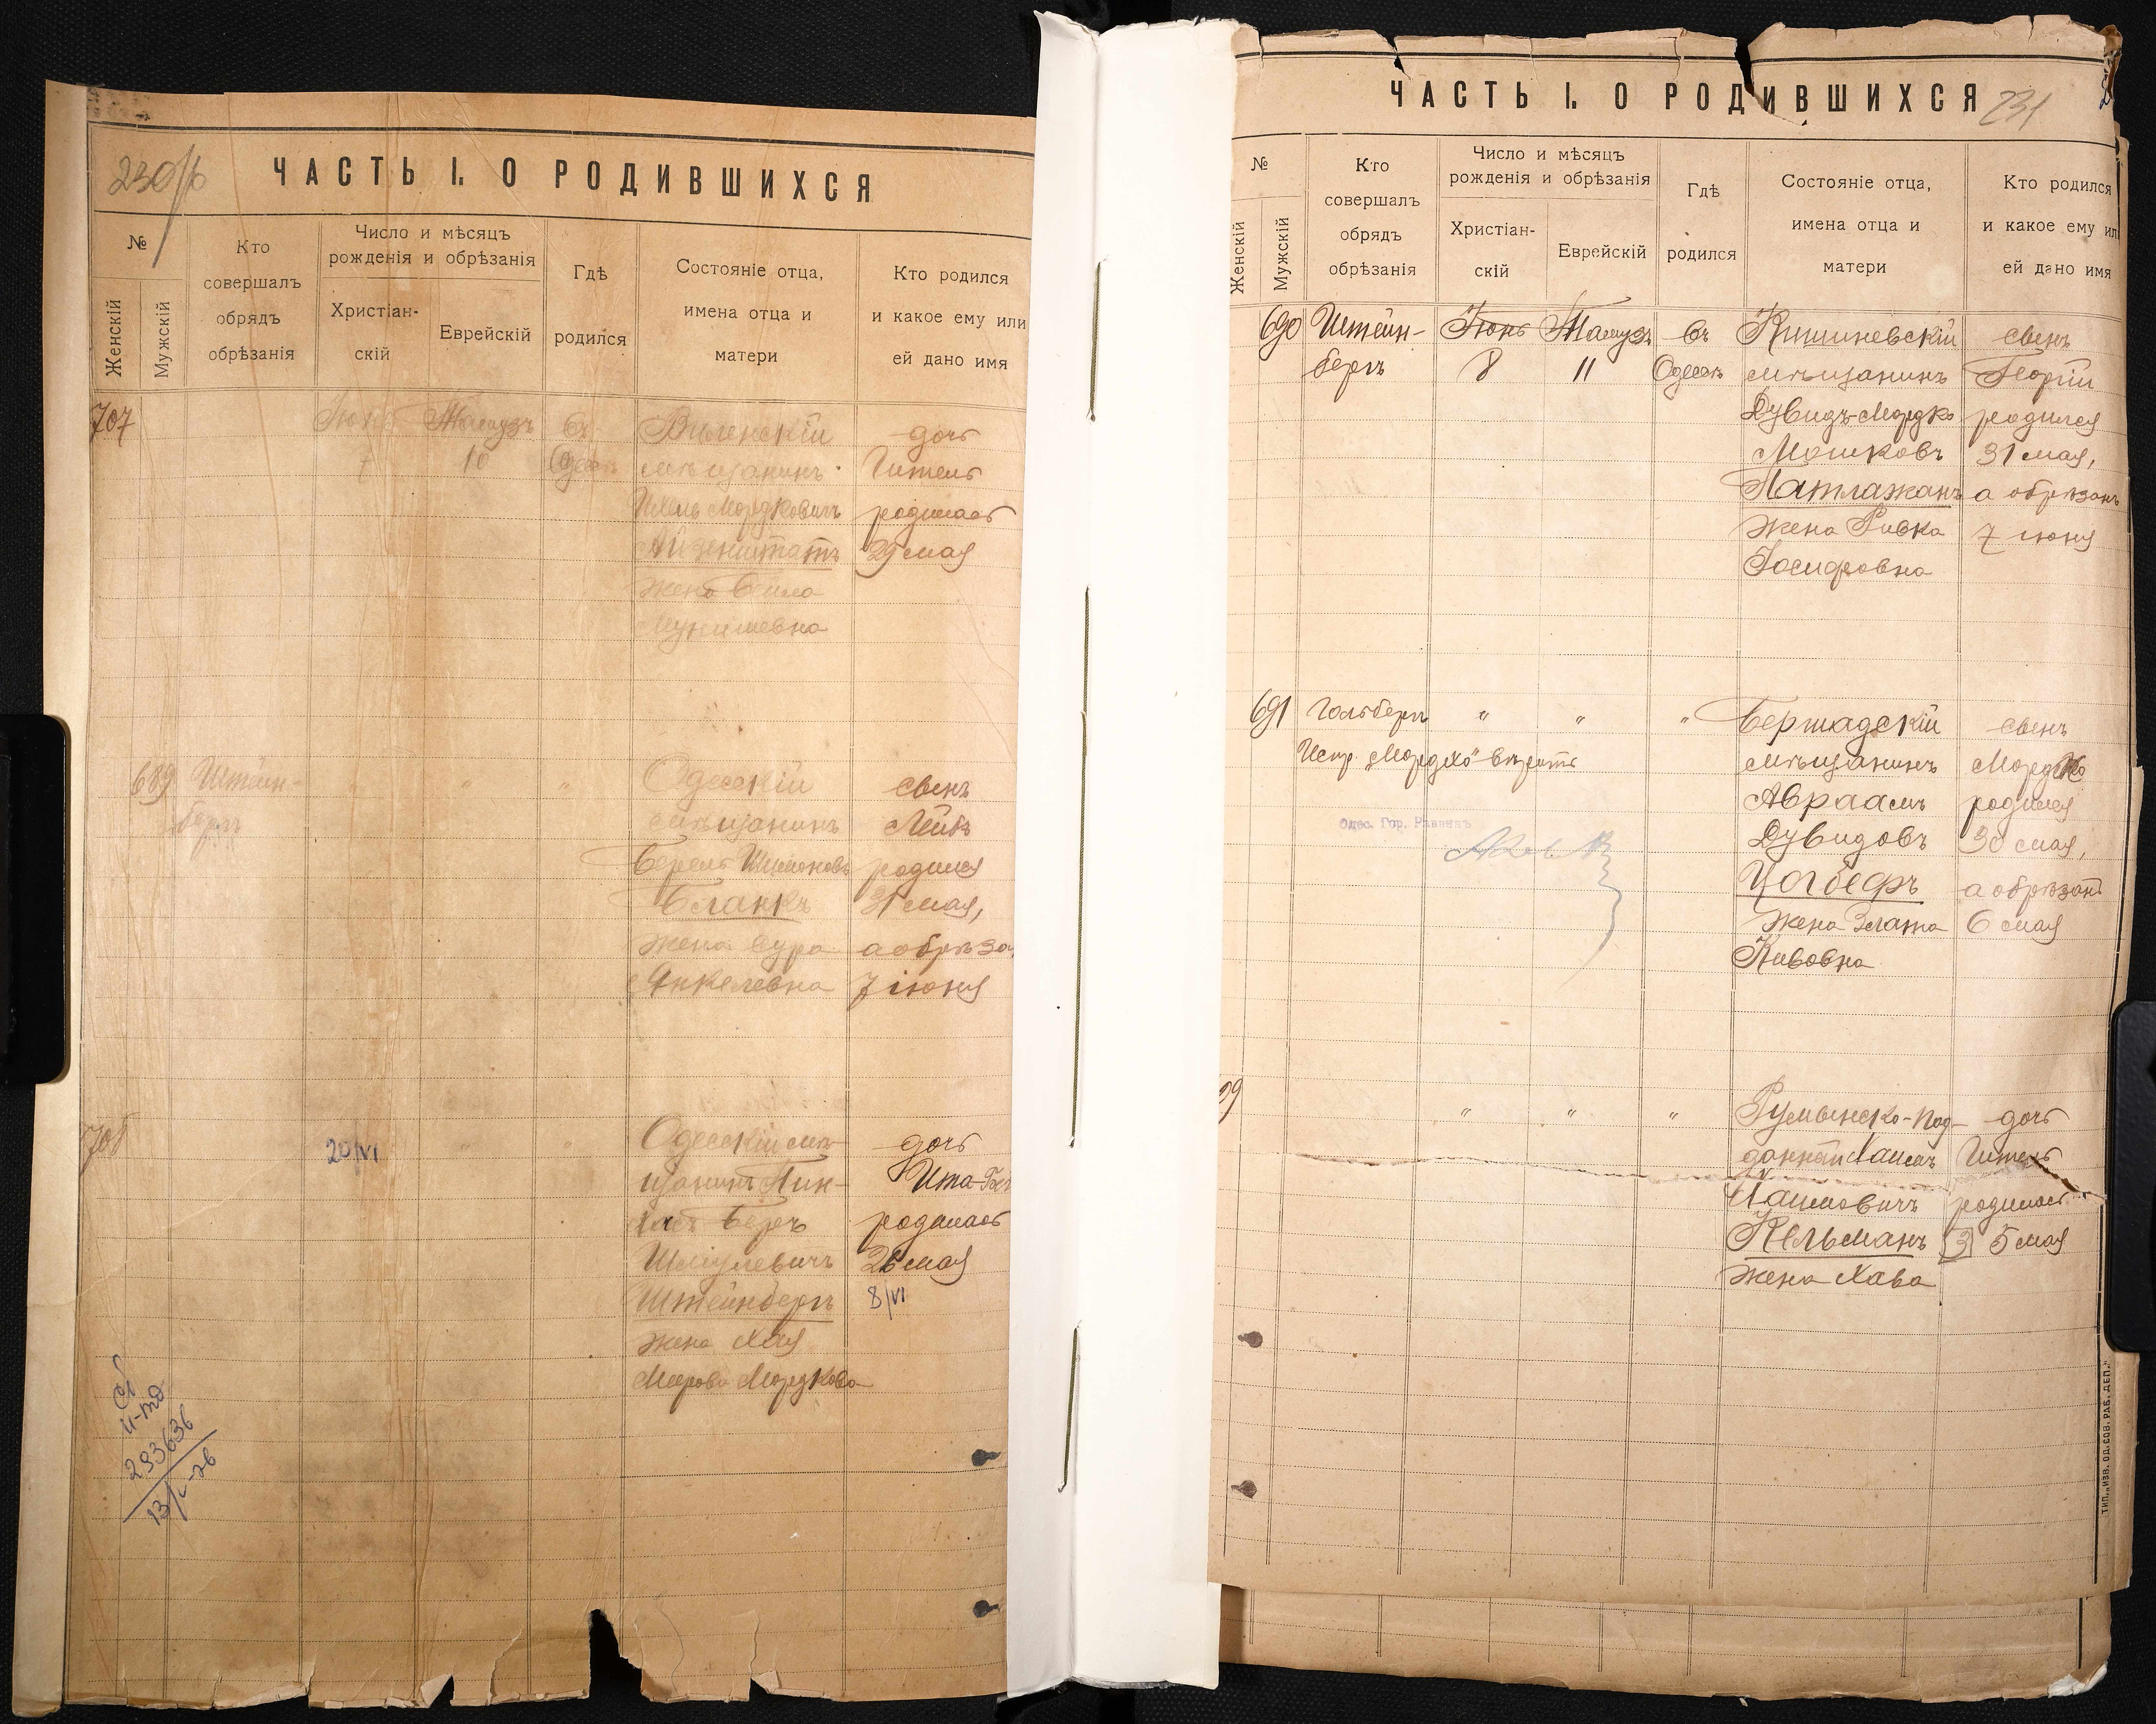 230/б
ЧАСТЬ I. О РОДИВШИХСЯ
№
Женскій
Мужскій
Кто
совершалъ
обрядъ
обрѣзанія
Число и мѣсяцъ
рожденія и обрѣзанія
Христіан-
скій
Еврейскій
Гдѣ
родился
Состояніе отца,
имена отца и
матери
Кто родился
и какое ему или
ей дано имя
707
Іюнь
7
Тамузъ
10
въ
Одессѣ
Виленскій
мѣщанинъ
Мордковичъ
Айзенштатъ
жена Бейла
дочь
Гитель
родилась
29 мая
689
Штейн-
бергъ
"
"
"
Одесскій
мѣщанинъ
Берель Шимоновъ
Бланкъ
жена Сура
Янкелевна
сынъ
Лейбъ
родился
31 мая,
а обрѣза
7 іюня
708
20/VI
"
"
Одесскій мѣ-
щанинъ Пин-
хасъ Беръ
Шмулевичъ
Штейнбергъ
жена Хая
Мордкова
дочь
Ита-
родилась
26 мая
8/VI
293636
ЧАСТЬ I. О РОДИВШИХСЯ
231
№
Женскій
Мужскій
Кто
совершалъ
обрядъ
обрѣзанія
Число и мѣсяцъ
рожденія и обрѣзанія
Христіан-
скій
Еврейскій
Гдѣ
родился
Состояніе отца,
имена отца и
матери
Кто родился
и какое ему ил
ей дано имя
690
Штейн-
бергъ
Іюнь
8
Тамузъ
11
въ
Одессѣ
Кишиневскій
мѣщанинъ
Дувидъ-Мордко
Мошковъ
Патлажанъ
жена Ривка
Іосифовна
сынъ
Георгій
родился
31 мая,
а обрѣзанъ
7 іюня
691
Гольбергъ
"
"
"
Испр. „Мордко" вѣрить
Одес. Гор. Раввинъ
Бершадскій
мѣщанинъ
Авраамъ
Дувидовъ
Цогбефъ
жена Злата
сынъ
Мордко
родился
30 мая,
а обрѣзанъ
6 мая
"
"
"
Румынско-под-
данный Хаимъ
Хаимовичъ
Кельманъ
жена Хава
дочь
Гитель
родилась
3 5 мая
ТИП. „ИЗВ. ОД. СОВ. РАБ. ДЕП."